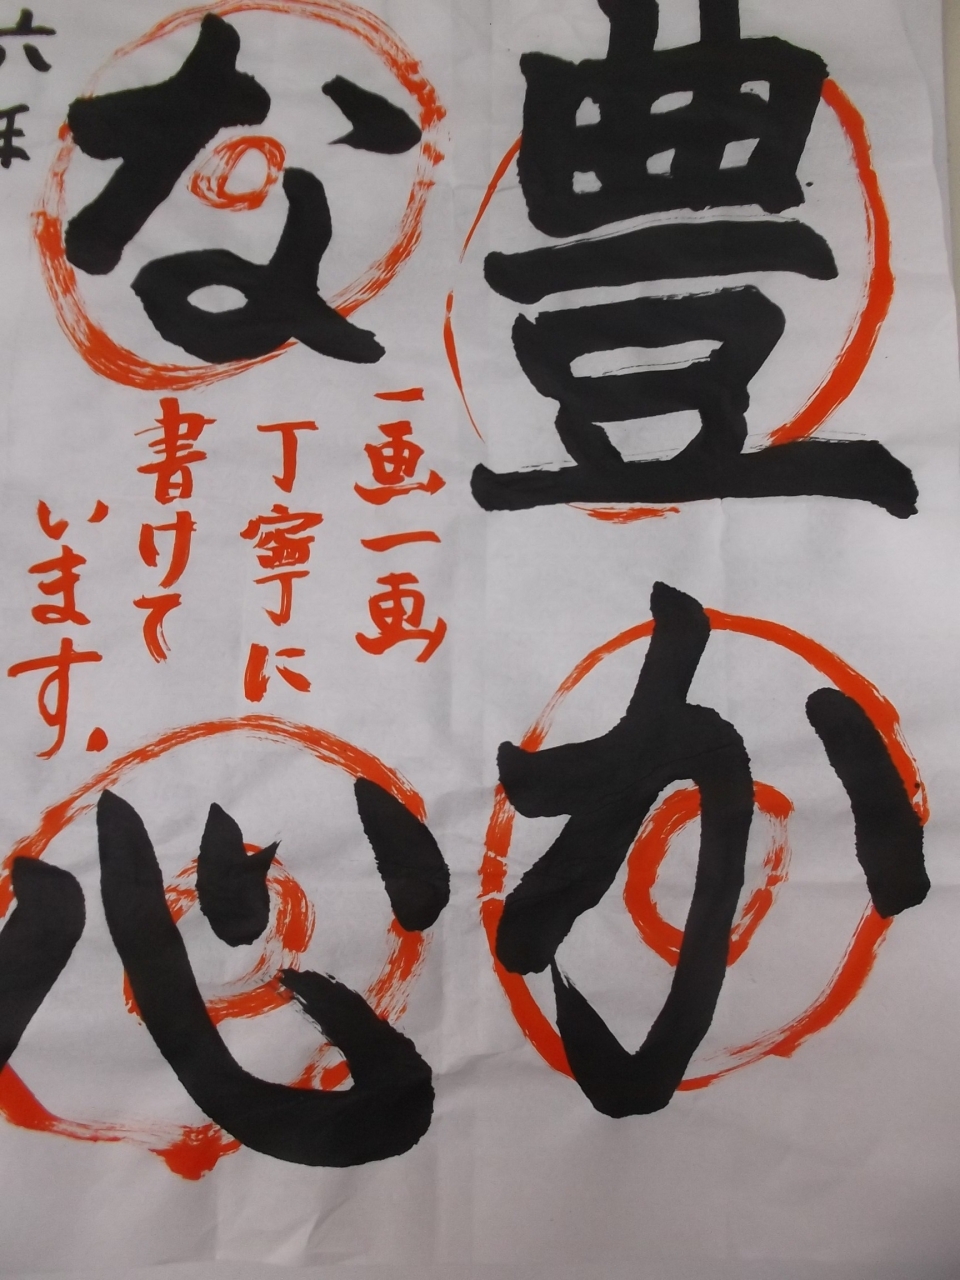 豊か
な心
一画一画
丁寧に
書けて
います。
六年